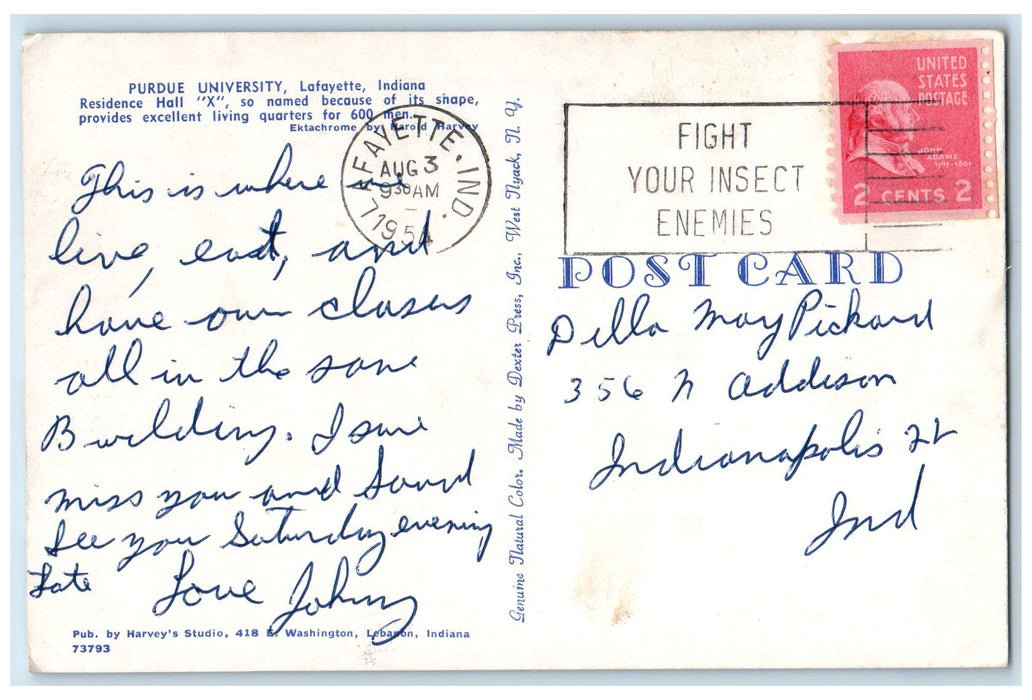 PURDUE UNIVERSITY, Lafayette, Indiana
Residence Hall "X", so named because of its shape,
provides excellent living quarters for 600 men.
Ektachrome by Harold Harvey
This is where we
live, eat, and
have our classes
all in the same
Building. I sure
miss you and
See you Saturday evening
Late
Love Johny
Pub. by Harvey's Studio, 418 E. Washington, Lebanon, Indiana
73793
Genuine Natural Color. Made by Dexter Press, Inc., West Nyack, N. Y.
LAFAYETTE, IND.
AUG 3
9 30 AM
1954
FIGHT
YOUR INSECT
ENEMIES
UNITED
STATES
POSTAGE
JOHN
ADAMS
1797-1801
2 CENTS 2
POST CARD
Della May Pickard
356 N Addison
Indianapolis 22
Ind